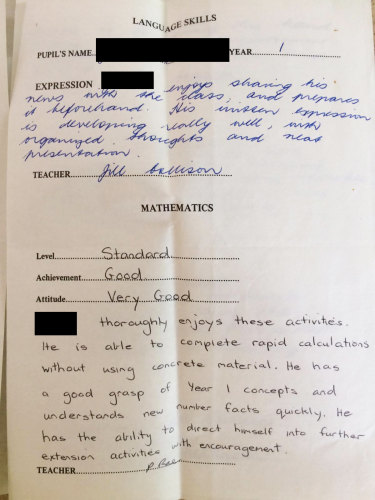 LANGUAGE SKILLS
PUPIL'S NAME YEAR 1
EXPRESSION enjoys sharing his
news with the class, and prepares
it beforehand. His written expression
is developing really well, with
organized thoughts and neat
presentation.
TEACHER Jill
MATHEMATICS
Level Standard
Achievement Good
Attitude Very Good
thoroughly enjoys these activities.
He is able to complete rapid calculations
without using concrete material. He has
a good grasp of Year 1 concepts and
understands new number facts quickly. He
has the ability to direct himself into further
extension activities with encouragement.
TEACHER